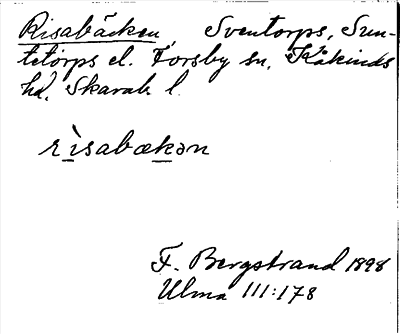 Risabäcken, Sventorps, Sun-
tetorps el. Forsby sn, Kåkinds
hd. Skarab. l.
rìsabækən
F. Bergstrand 1898
Ulma 111:178